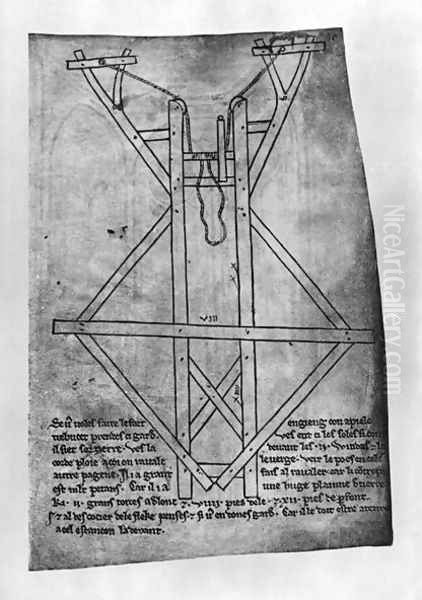 VIII
Se vs volés faire le fort
engieng con apiele
trebucet prendes ci gard.
ves ent ci les soles si con
il siet sor tierre. Ves la
devant les .ii. windas
corde ploie a coi on ravale
le verge. Veir le poes en cele
autre pagene. Il i a grant
fais al ravaler. car li
est mlt pezans. Car il i a
une huge plainne de tierre
Ki .ii. grans toizes a de lonc & .VIIII. pies de le. & .XII. pies de pfont.
& al descocier de le fleke penses. & si vs en dones gard. Car il le doit estre
a cel estancon la devant.
NiceArtGallery.com